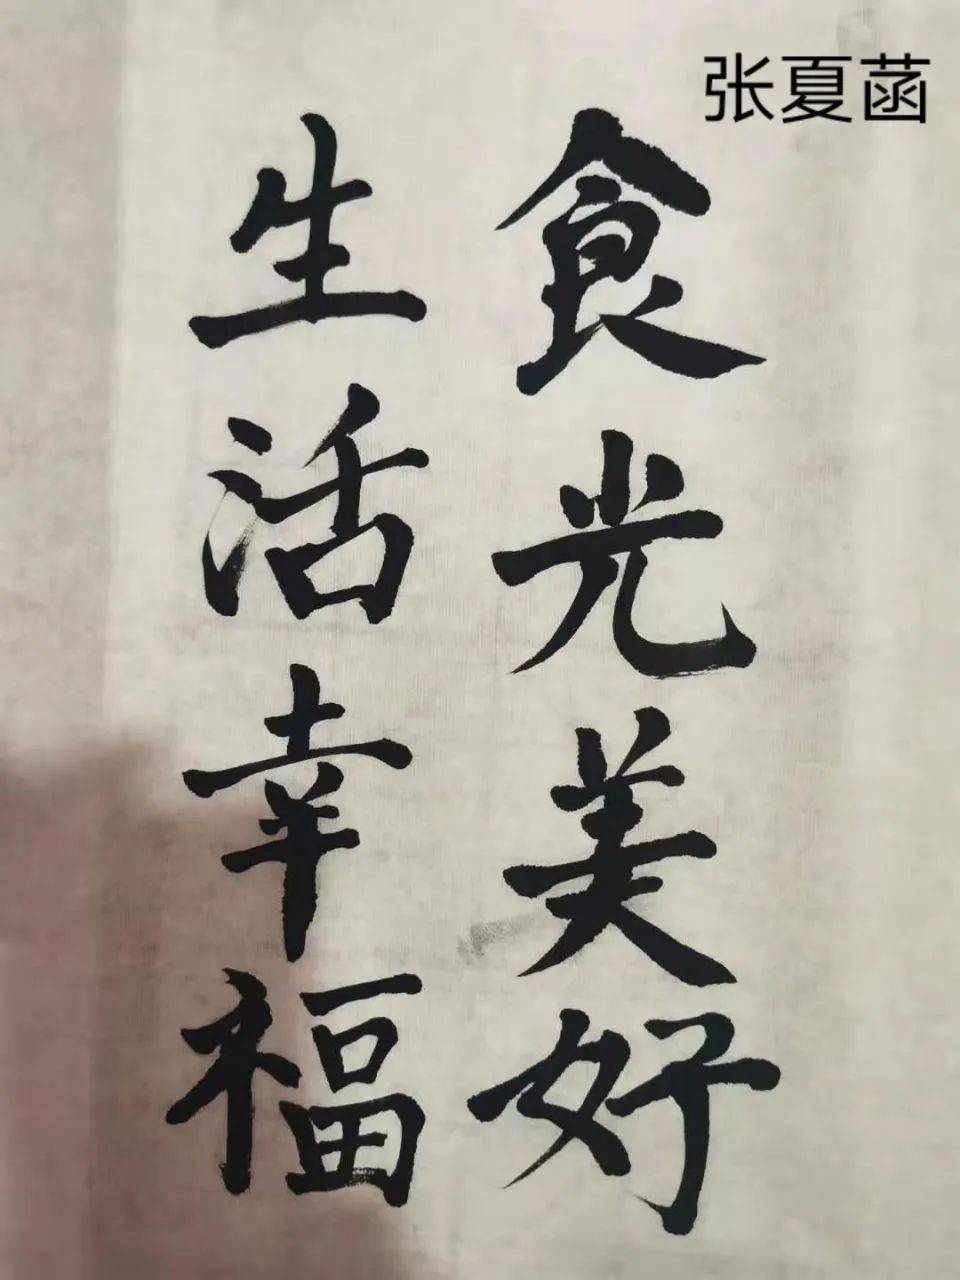 张夏菡
食光美好
生活幸福